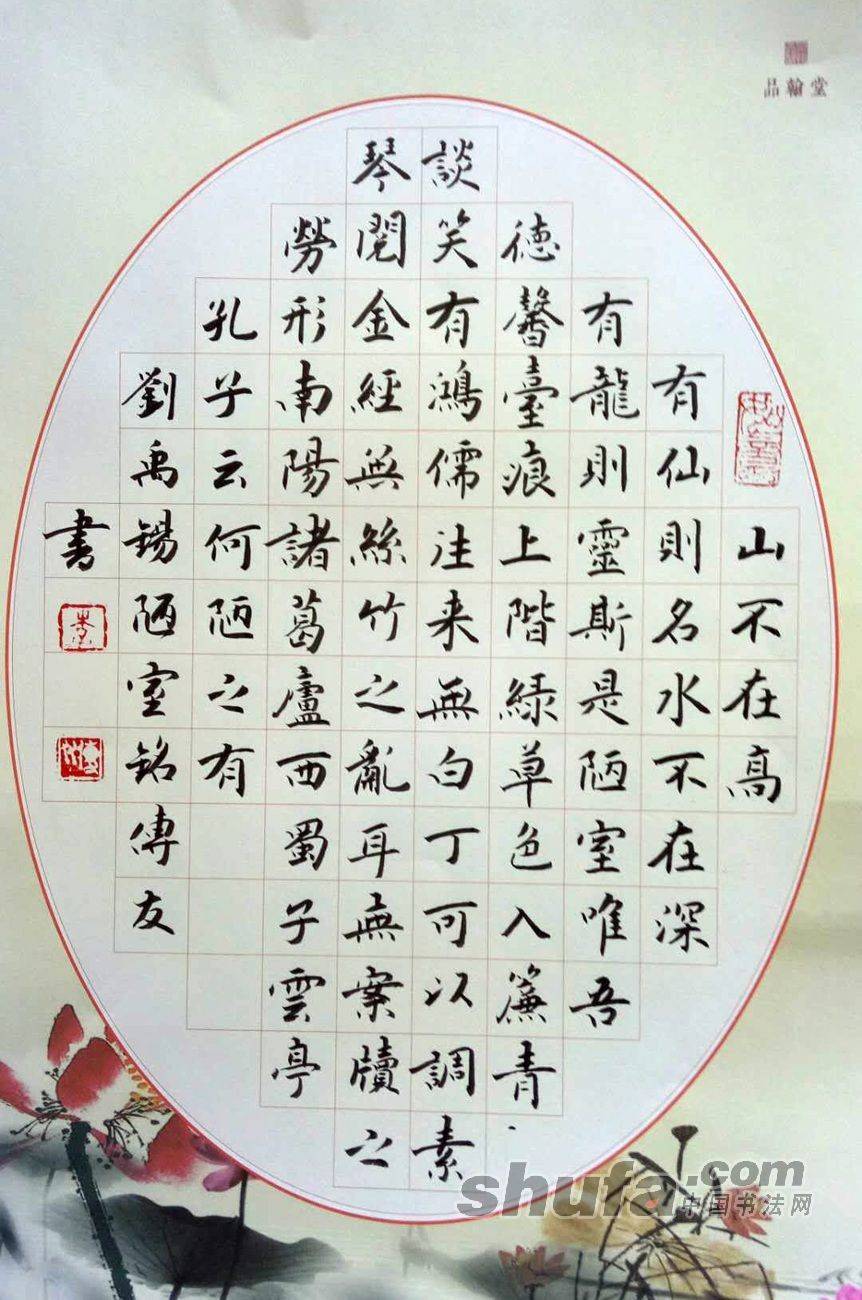 品翰堂
山不在高
有仙則名水不在深
有龍則靈斯是陋室唯吾
德馨臺痕上階緑草色入簾青
談笑有鴻儒往来無白丁可以調素
琴閱金經無絲竹之亂耳無案牘之
勞形南陽諸葛廬西蜀子雲亭
孔子云何陋之有
劉禹錫陋室銘傳友
書
shufa.com
中国书法网